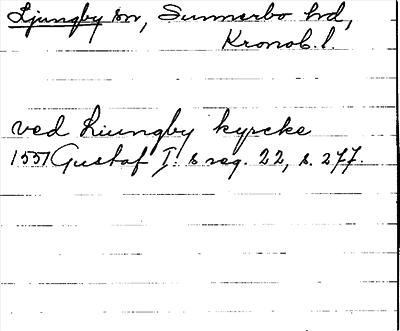 Ljungby sn, Sunnerbo hd,
Kronob. l.
ved Liungby kyrcke
1557 Gustaf I:s reg. 22, s. 277.